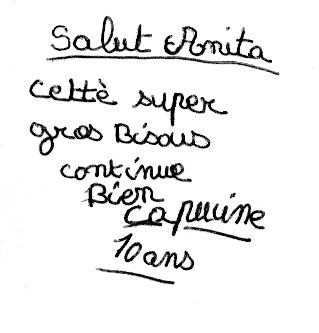 Salut Anita
Cettè super
gros Bisous
continue
Bien
Capucine
10 ans